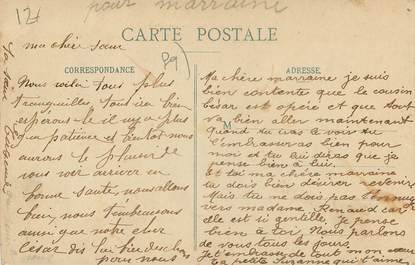 pour marraine
12f
CARTE POSTALE
CORRESPONDANCE
ADRESSE
ma chère sœur
Nous voila tous plus
tranquilles tout ira bien
espérons-le il n'y a plus
que patience et bientot nous
aurons le plaisir de
vous voir arriver en
bonne santé, nous allons
bien, nous t'embrassons
ainsi que notre cher
césar dis lui bien des choses
pour nous
Ta sœur
Ma chère marraine je suis
bien contente que le cousin
césar est opéré et que tout
va bien aller maintenant
Quand tu iras a voir tu
l'embrasseras bien pour
moi et tu lui diras que je
pense bien à lui.
Et toi ma chère marraine
tu dois bien désirer revenir
Mais tu ne dois pas t'ennuyer
vers madame Renaud car
elle est si gentille. Je pense
bien à toi. Nous parlons
de vous tous les jours.
Je t'embrasse de tout mon cœur
ta petite Suzanne qui t'aime